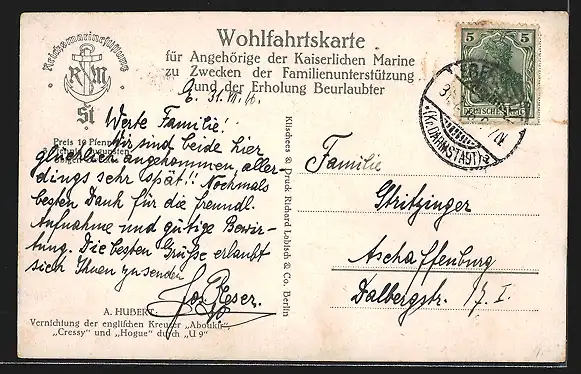 Reichsmarinestiftung
R M
St
Wohlfahrtskarte
für Angehörige der Kaiserlichen Marine
zu Zwecken der Familienunterstützung
und der Erholung Beurlaubter
E. 31.VII.16.
Preis 10 Pfennig
Werte Familie!
Wir sind beide hier
glücklich angekommen, aller-
dings sehr spät!! Nochmals
besten Dank für die freundl.
Aufnahme und gütige Bewir-
tung. Die besten Grüße erlaubt
sich Ihnen zu senden
Jos. Reser.
A. HUBERT:
Vernichtung der englischen Kreuzer „Aboukir“,
„Cressy“ und „Hogue“ durch „U 9“
Klischees & Druck Richard Labisch & Co. Berlin
5 5
DEUTSCHES REICH
(Kr. DARMSTADT)
Familie
Stritzinger
Aschaffenburg
Dalbergstr. 17. I.